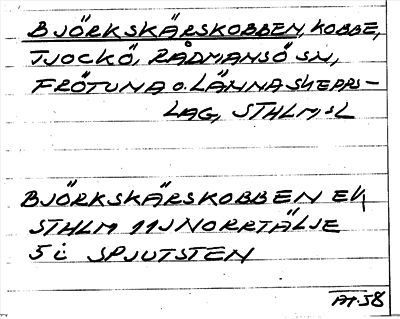 BJÖRKSKÄRSKOBBEN, KOBBE,
TJOCKÖ, RÅDMANSÖ SN,
FRÖTUNA O. LÄNNA SKEPPS-
LAG, STHLM,SL
BJÖRKSKÄRSKOBBEN EK
STHLM 11J NORRTÄLJE
5 i SPJUTSTEN
AT.58